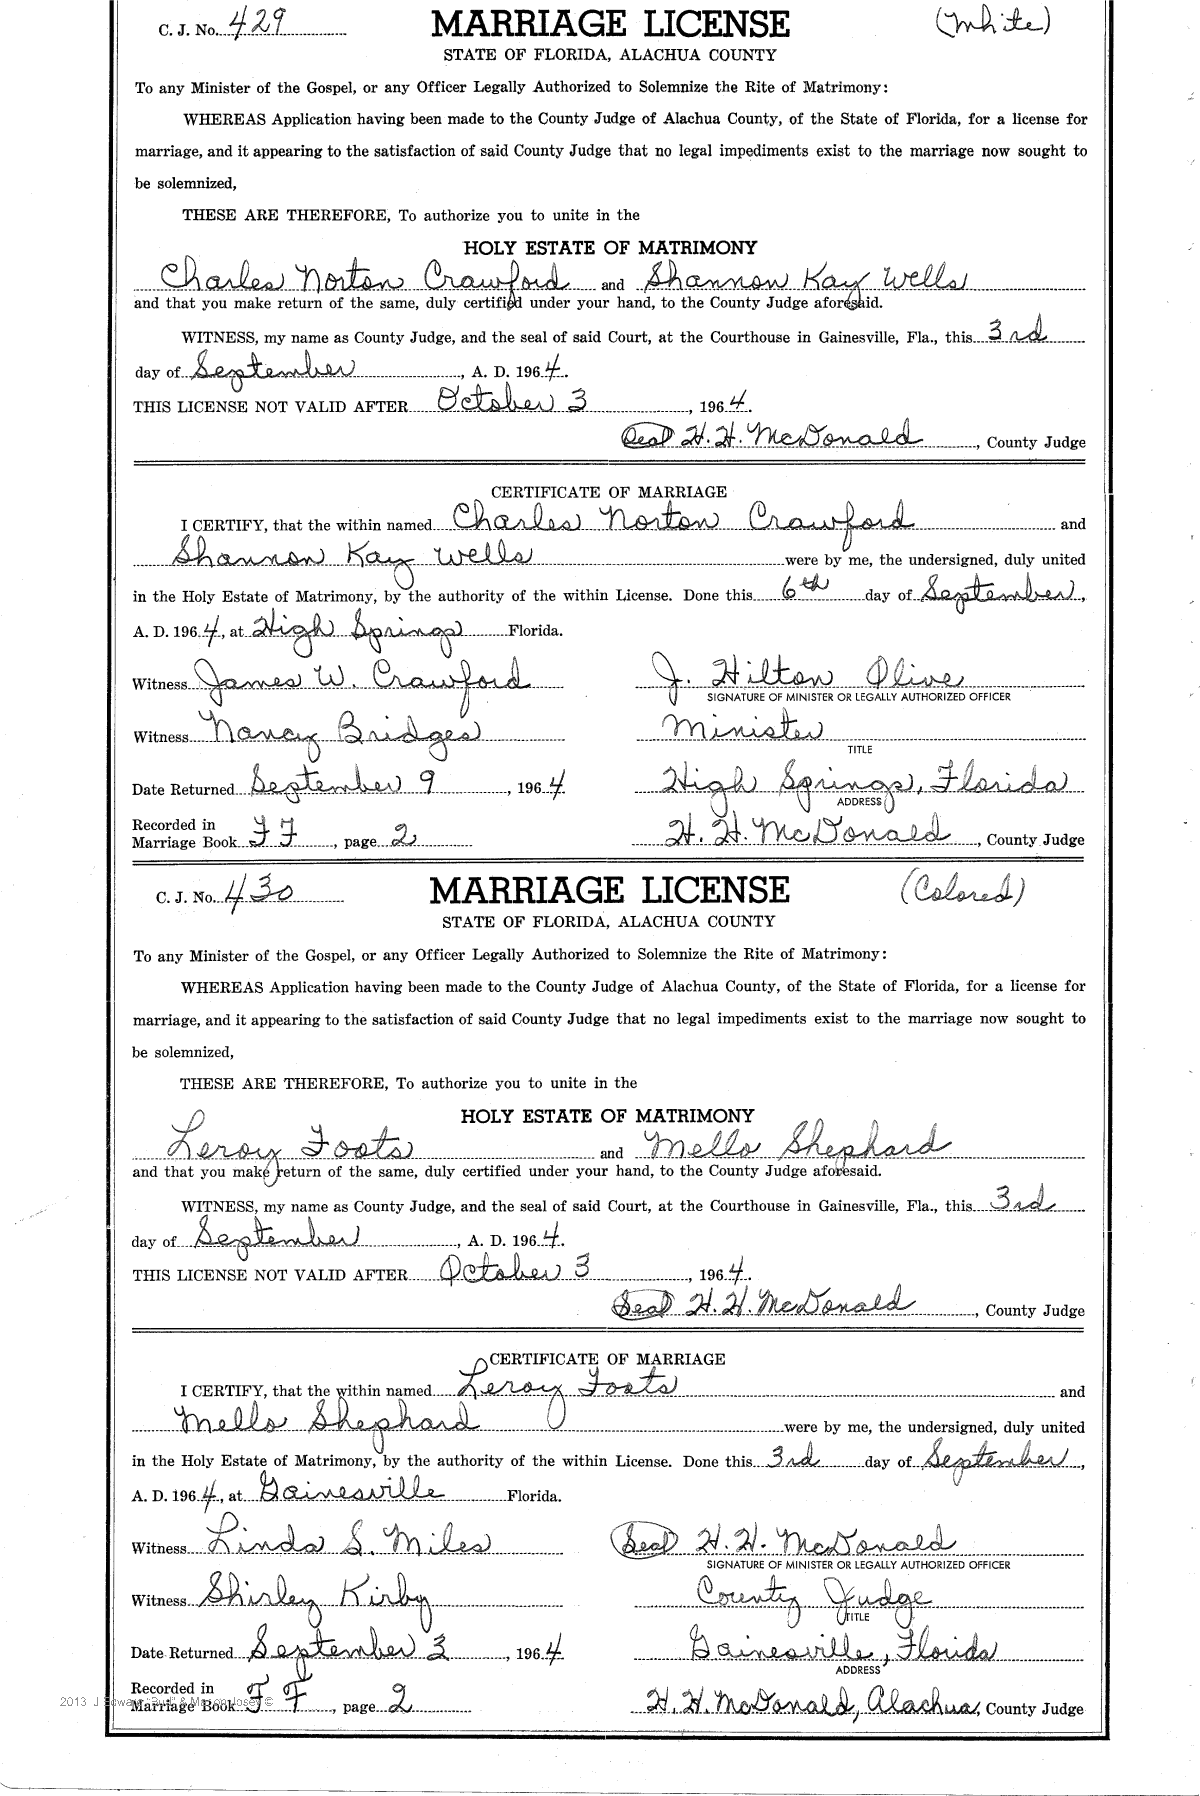 C. J. No. 429 MARRIAGE LICENSE (White)
STATE OF FLORIDA, ALACHUA COUNTY
To any Minister of the Gospel, or any Officer Legally Authorized to Solemnize the Rite of Matrimony:
WHEREAS Application having been made to the County Judge of Alachua County, of the State of Florida, for a license for
marriage, and it appearing to the satisfaction of said County Judge that no legal impediments exist to the marriage now sought to
be solemnized,
THESE ARE THEREFORE, To authorize you to unite in the
HOLY ESTATE OF MATRIMONY
Charles Norton Crawford and Shannon Kay Wells
and that you make return of the same, duly certified under your hand, to the County Judge aforesaid.
WITNESS, my name as County Judge, and the seal of said Court, at the Courthouse in Gainesville, Fla., this 3rd
day of September, A. D. 1964.
THIS LICENSE NOT VALID AFTER October 3, 1964.
Seal H. H. McDonald, County Judge
CERTIFICATE OF MARRIAGE
I CERTIFY, that the within named Charles Norton Crawford and
Shannon Kay Wells were by me, the undersigned, duly united
in the Holy Estate of Matrimony, by the authority of the within License. Done this 6th day of September,
A. D. 1964, at High Springs Florida.
Witness James W. Crawford J. Hilton Olive
SIGNATURE OF MINISTER OR LEGALLY AUTHORIZED OFFICER
Witness Nancy Bridges Minister
TITLE
Date Returned September 9, 1964 High Springs, Florida
ADDRESS
Recorded in
Marriage Book FF, page 2 H. H. McDonald, County Judge
C. J. No. 430 MARRIAGE LICENSE (Colored)
STATE OF FLORIDA, ALACHUA COUNTY
To any Minister of the Gospel, or any Officer Legally Authorized to Solemnize the Rite of Matrimony:
WHEREAS Application having been made to the County Judge of Alachua County, of the State of Florida, for a license for
marriage, and it appearing to the satisfaction of said County Judge that no legal impediments exist to the marriage now sought to
be solemnized,
THESE ARE THEREFORE, To authorize you to unite in the
HOLY ESTATE OF MATRIMONY
Leroy Foots and Mello Shephard
and that you make return of the same, duly certified under your hand, to the County Judge aforesaid.
WITNESS, my name as County Judge, and the seal of said Court, at the Courthouse in Gainesville, Fla., this 3rd
day of September, A. D. 1964.
THIS LICENSE NOT VALID AFTER October 3, 1964.
Seal H. H. McDonald, County Judge
CERTIFICATE OF MARRIAGE
I CERTIFY, that the within named Leroy Foots and
Mello Shephard were by me, the undersigned, duly united
in the Holy Estate of Matrimony, by the authority of the within License. Done this 3rd day of September,
A. D. 1964, at Gainesville Florida.
Witness Linda S. Miles Seal H. H. McDonald
SIGNATURE OF MINISTER OR LEGALLY AUTHORIZED OFFICER
Witness Shirley Kirby County Judge
TITLE
Date Returned September 3, 1964 Gainesville, Florida
ADDRESS
Recorded in
2013 J Edward "Bud" & Marion Josey ©
Marriage Book FF, page 2 H. H. McDonald, Alachua, County Judge